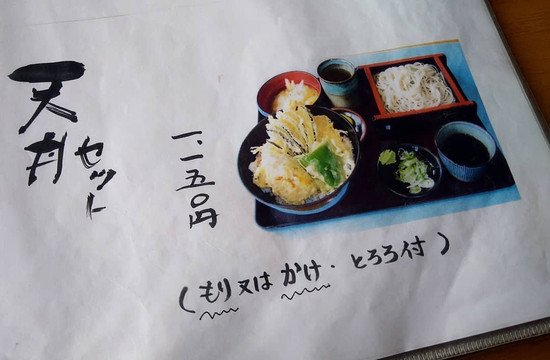 天丼
セット
一、一五〇円
(もり又はかけ・とろろ付)